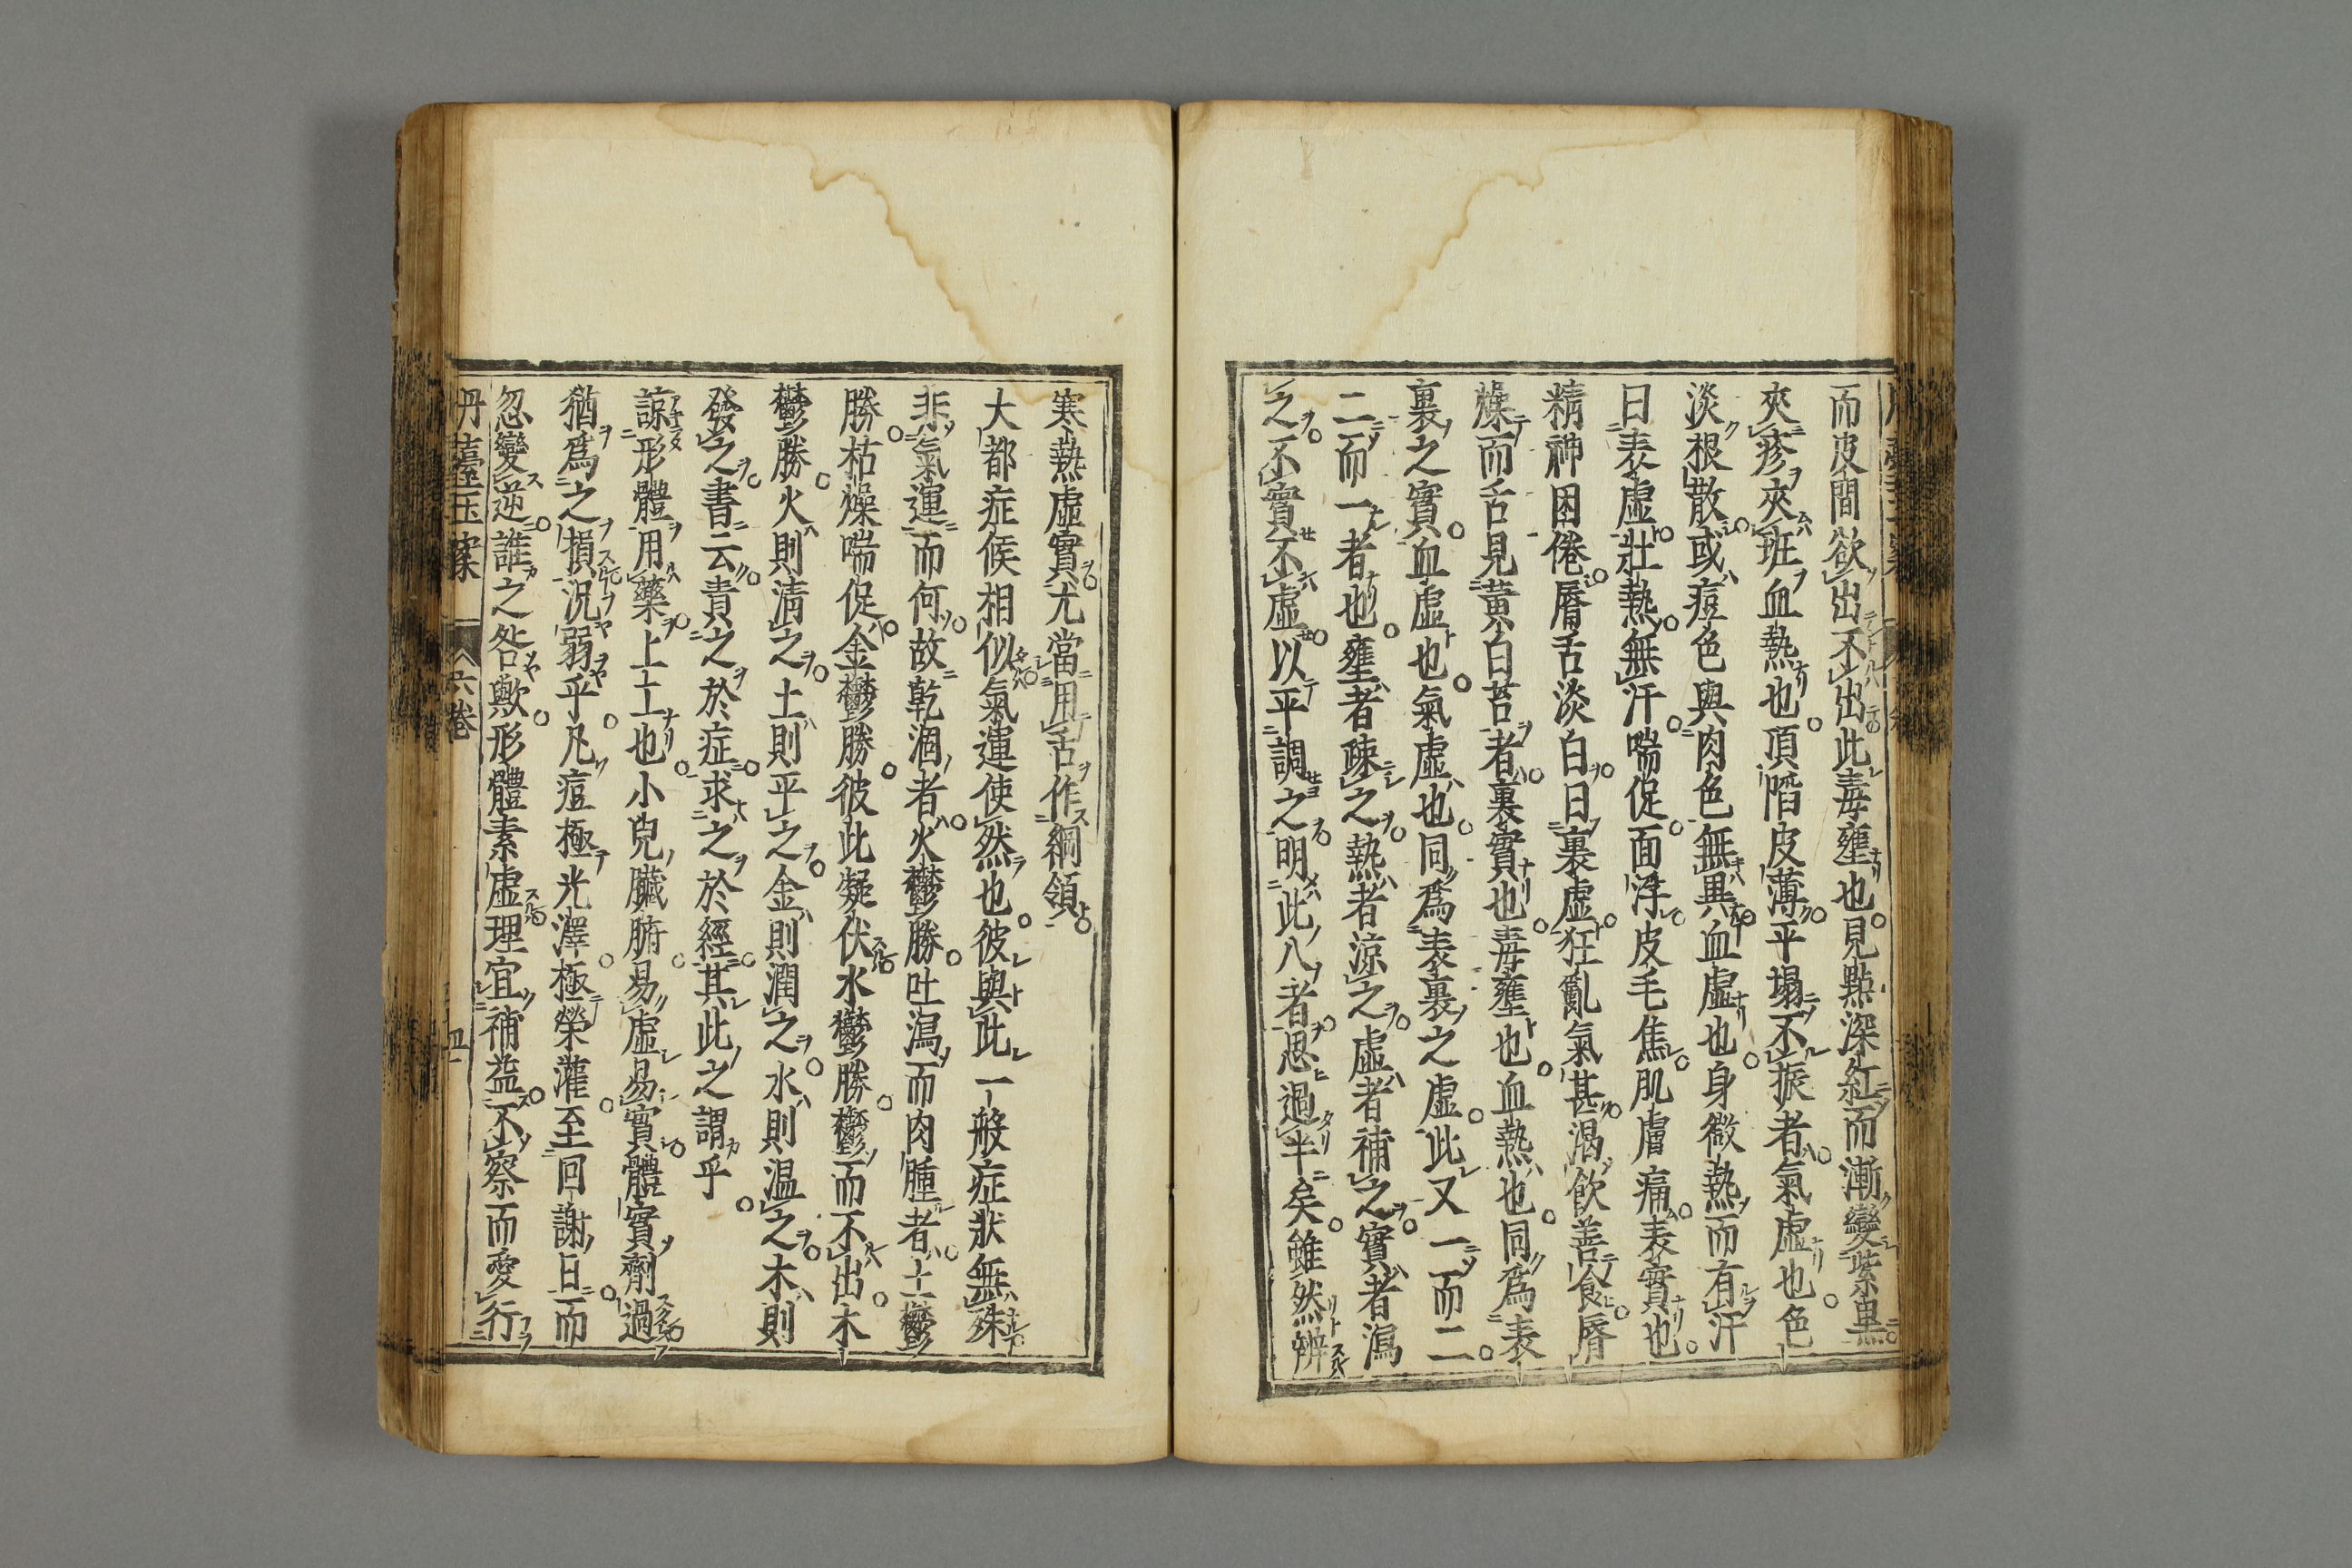 而皮間欲出不出此毒壅也見點深紅而漸變紫黒
夾疹夾班血熱也頂陷皮薄平塌不振者氣虛也色
淡根散或痘色與肉色無異血虛也身微熱而有汗
曰表虛壯熱無汗喘促面浮皮毛焦肌膚痛表實也
精神困倦脣舌淡白曰裏虛狂亂氣甚渴飲善食脣
燥而舌見黃白苔者裏實也毒壅也血熱也同爲表
裏之實血虛也氣虛也同爲表裏之虛此又一而二
二而一者也壅者疎之熱者凉之虛者補之實者瀉
之不實不虛以平調之明此八者思過半矣雖然辨
寒熱虛實尤當用舌作綱領
大都症候相似氣運使然也彼與此一般症狀無殊
非氣運而何故乾涸者火鬱勝吐瀉而肉腫者土鬱
勝枯燥喘促金鬱勝彼此凝伏水鬱勝鬱而不出木
鬱勝火則清之土則平之金則潤之水則温之木則
發之書云責之於症求之於經其此之謂乎
諒形體用藥上工也小兒臟腑易虛易實體實劑過
猶爲之損况弱乎凡痘極光澤極榮灌至回謝日而
忽變逆誰之咎歟形體素虛理宜補益不察而愛行
丹臺玉案
六卷